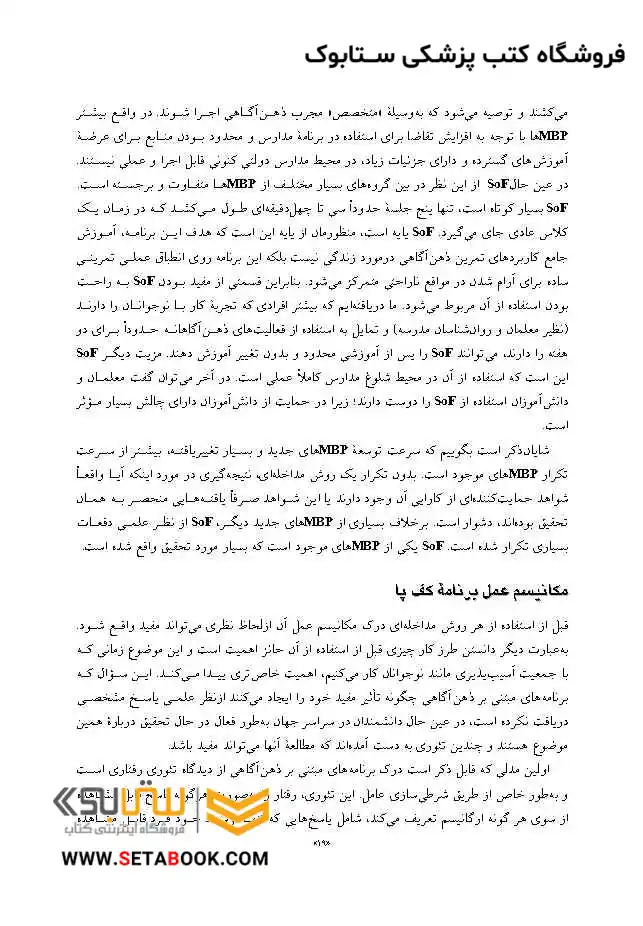 فروشگاه کتب پزشکی ستابوک
می‌کشند و توصیه می‌شود که به‌وسیلهٔ «متخصص» مجرب ذهن‌آگاهی اجرا شوند. در واقع بیشتر
MBPها با توجه به افزایش تقاضا برای استفاده در برنامهٔ مدارس و محدود بودن منابع برای عرضهٔ
آموزش‌های گسترده و دارای جزئیات زیاد، در محیط مدارس دولتی کنونی قابل اجرا و عملی نیستند.
در عین حال SoF از این نظر در بین گروه‌های بسیار مختلف از MBPها متفاوت و برجسته است.
SoF بسیار کوتاه است، تنها پنج جلسهٔ حدوداً سی تا چهل‌دقیقه‌ای طول می‌کشد که در زمان یک
کلاس عادی جای می‌گیرد. SoF پایه است، منظورمان از پایه این است که هدف این برنامه، آموزش
جامع کاربردهای تمرین ذهن‌آگاهی درمورد زندگی نیست بلکه این برنامه روی انطباق عملی تمرینی
ساده برای آرام شدن در مواقع ناراحتی متمرکز می‌شود. بنابراین قسمتی از مفید بودن SoF به راحت
بودن استفاده از آن مربوط می‌شود. ما دریافته‌ایم که بیشتر افرادی که تجربهٔ کار با نوجوانان را دارند
(نظیر معلمان و روان‌شناسان مدرسه) و تمایل به استفاده از فعالیت‌های ذهن‌آگاهانه حدوداً برای دو
هفته را دارند، می‌توانند SoF را پس از آموزشی محدود و بدون تغییر آموزش دهند. مزیت دیگر SoF
این است که استفاده از آن در محیط شلوغ مدارس کاملاً عملی است. در آخر می‌توان گفت معلمان و
دانش‌آموزان استفاده از SoF را دوست دارند؛ زیرا در حمایت از دانش‌آموزان دارای چالش بسیار مؤثر
است.
شایان‌ذکر است بگوییم که سرعت توسعهٔ MBPهای جدید و بسیار تغییریافته، بیشتر از سرعت
تکرار MBPهای موجود است. بدون تکرار یک روش مداخله‌ای، نتیجه‌گیری در مورد اینکه آیا واقعاً
شواهد حمایت‌کننده‌ای از کارایی آن وجود دارند یا این شواهد صرفاً یافته‌هایی منحصر به همان
تحقیق بوده‌اند، دشوار است. برخلاف بسیاری از MBPهای جدید دیگر، SoF از نظر علمی دفعات
بسیاری تکرار شده است. SoF یکی از MBPهای موجود است که بسیار مورد تحقیق واقع شده است.
مکانیسم عمل برنامهٔ کف پا
قبل از استفاده از هر روش مداخله‌ای درک مکانیسم عمل آن ازلحاظ نظری می‌تواند مفید واقع شود.
به‌عبارت دیگر دانستن طرز کار چیزی قبل از استفاده از آن حائز اهمیت است و این موضوع زمانی که
با جمعیت آسیب‌پذیری مانند نوجوانان کار می‌کنیم، اهمیت خاص‌تری پیدا می‌کند. این سؤال که
برنامه‌های مبتنی بر ذهن‌آگاهی چگونه تأثیر مفید خود را ایجاد می‌کنند ازنظر علمی پاسخ مشخصی
دریافت نکرده است، در عین حال دانشمندان در سراسر جهان به‌طور فعال در حال تحقیق دربارهٔ همین
موضوع هستند و چندین تئوری به دست آمده‌اند که مطالعهٔ آنها می‌تواند مفید باشد.
اولین مدلی که قابل ذکر است درک برنامه‌های مبتنی بر ذهن‌آگاهی از دیدگاه تئوری رفتاری است
و به‌طور خاص از طریق شرطی‌سازی عامل. این تئوری، رفتار را به‌صورت هرگونه پاسخ قابل مشاهده
از سوی هر گونه ارگانیسم تعریف می‌کند، شامل پاسخ‌هایی که خود فرد قابل مشاهده
«۱۹»
ستابوک
فروشگاه اینترنتی کتاب
WWW.SETABOOK.COM